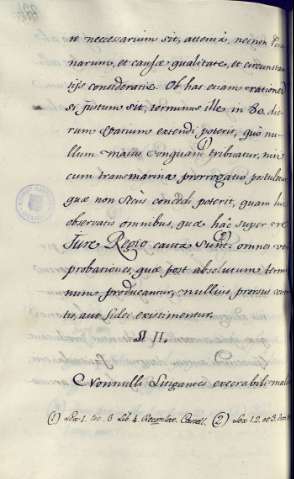 ne necessarium sit, attentâ, nempe
narum, et causæ qualitate, et circunstan
tijs consideratis. Ob has etiam
si justum sit, terminus ille in 80. die
rum spatium extendi poterit, quò nu
llum maius conquam tribuatur, ni
cum transmarina prorrogatio postuletur
quæ non secus concedi poterit, quam
observatis omnibus, quæ hâc super re
Jure Regio cauta sunt: omnes
probationes, quæ post absolutum termi
num producantur, nullius prorsus
tis, aut fidei existimentur.
§ II.
Nonnulli Litigantes execrabili mali
(1) Lex 1. tit. 6 Lib 4 (2) Lex 1.2. et 3.